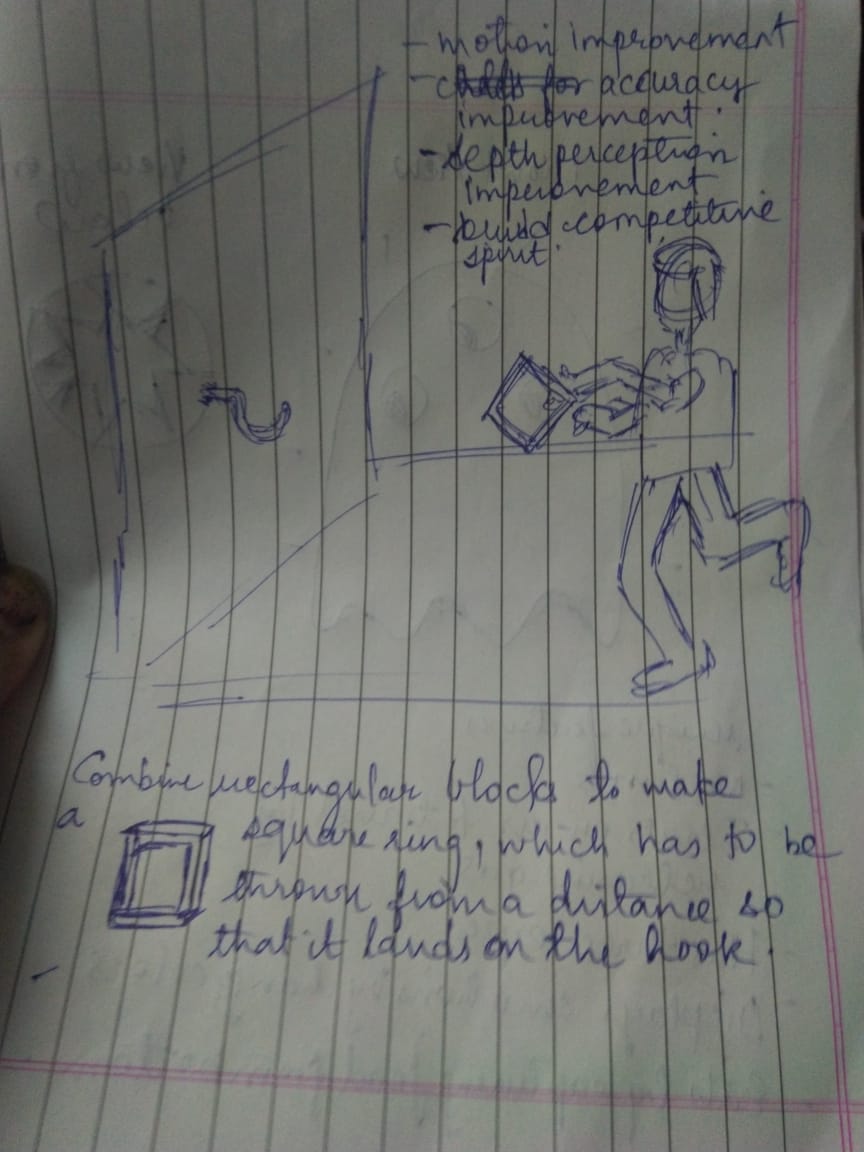 - motion improvement
- accuracy
improvement.
- depth perception
improvement
- build competitive
spirit.
Combine rectangular blocks to make
a square ring, which has to be
thrown from a distance so
that it lands on the hook.